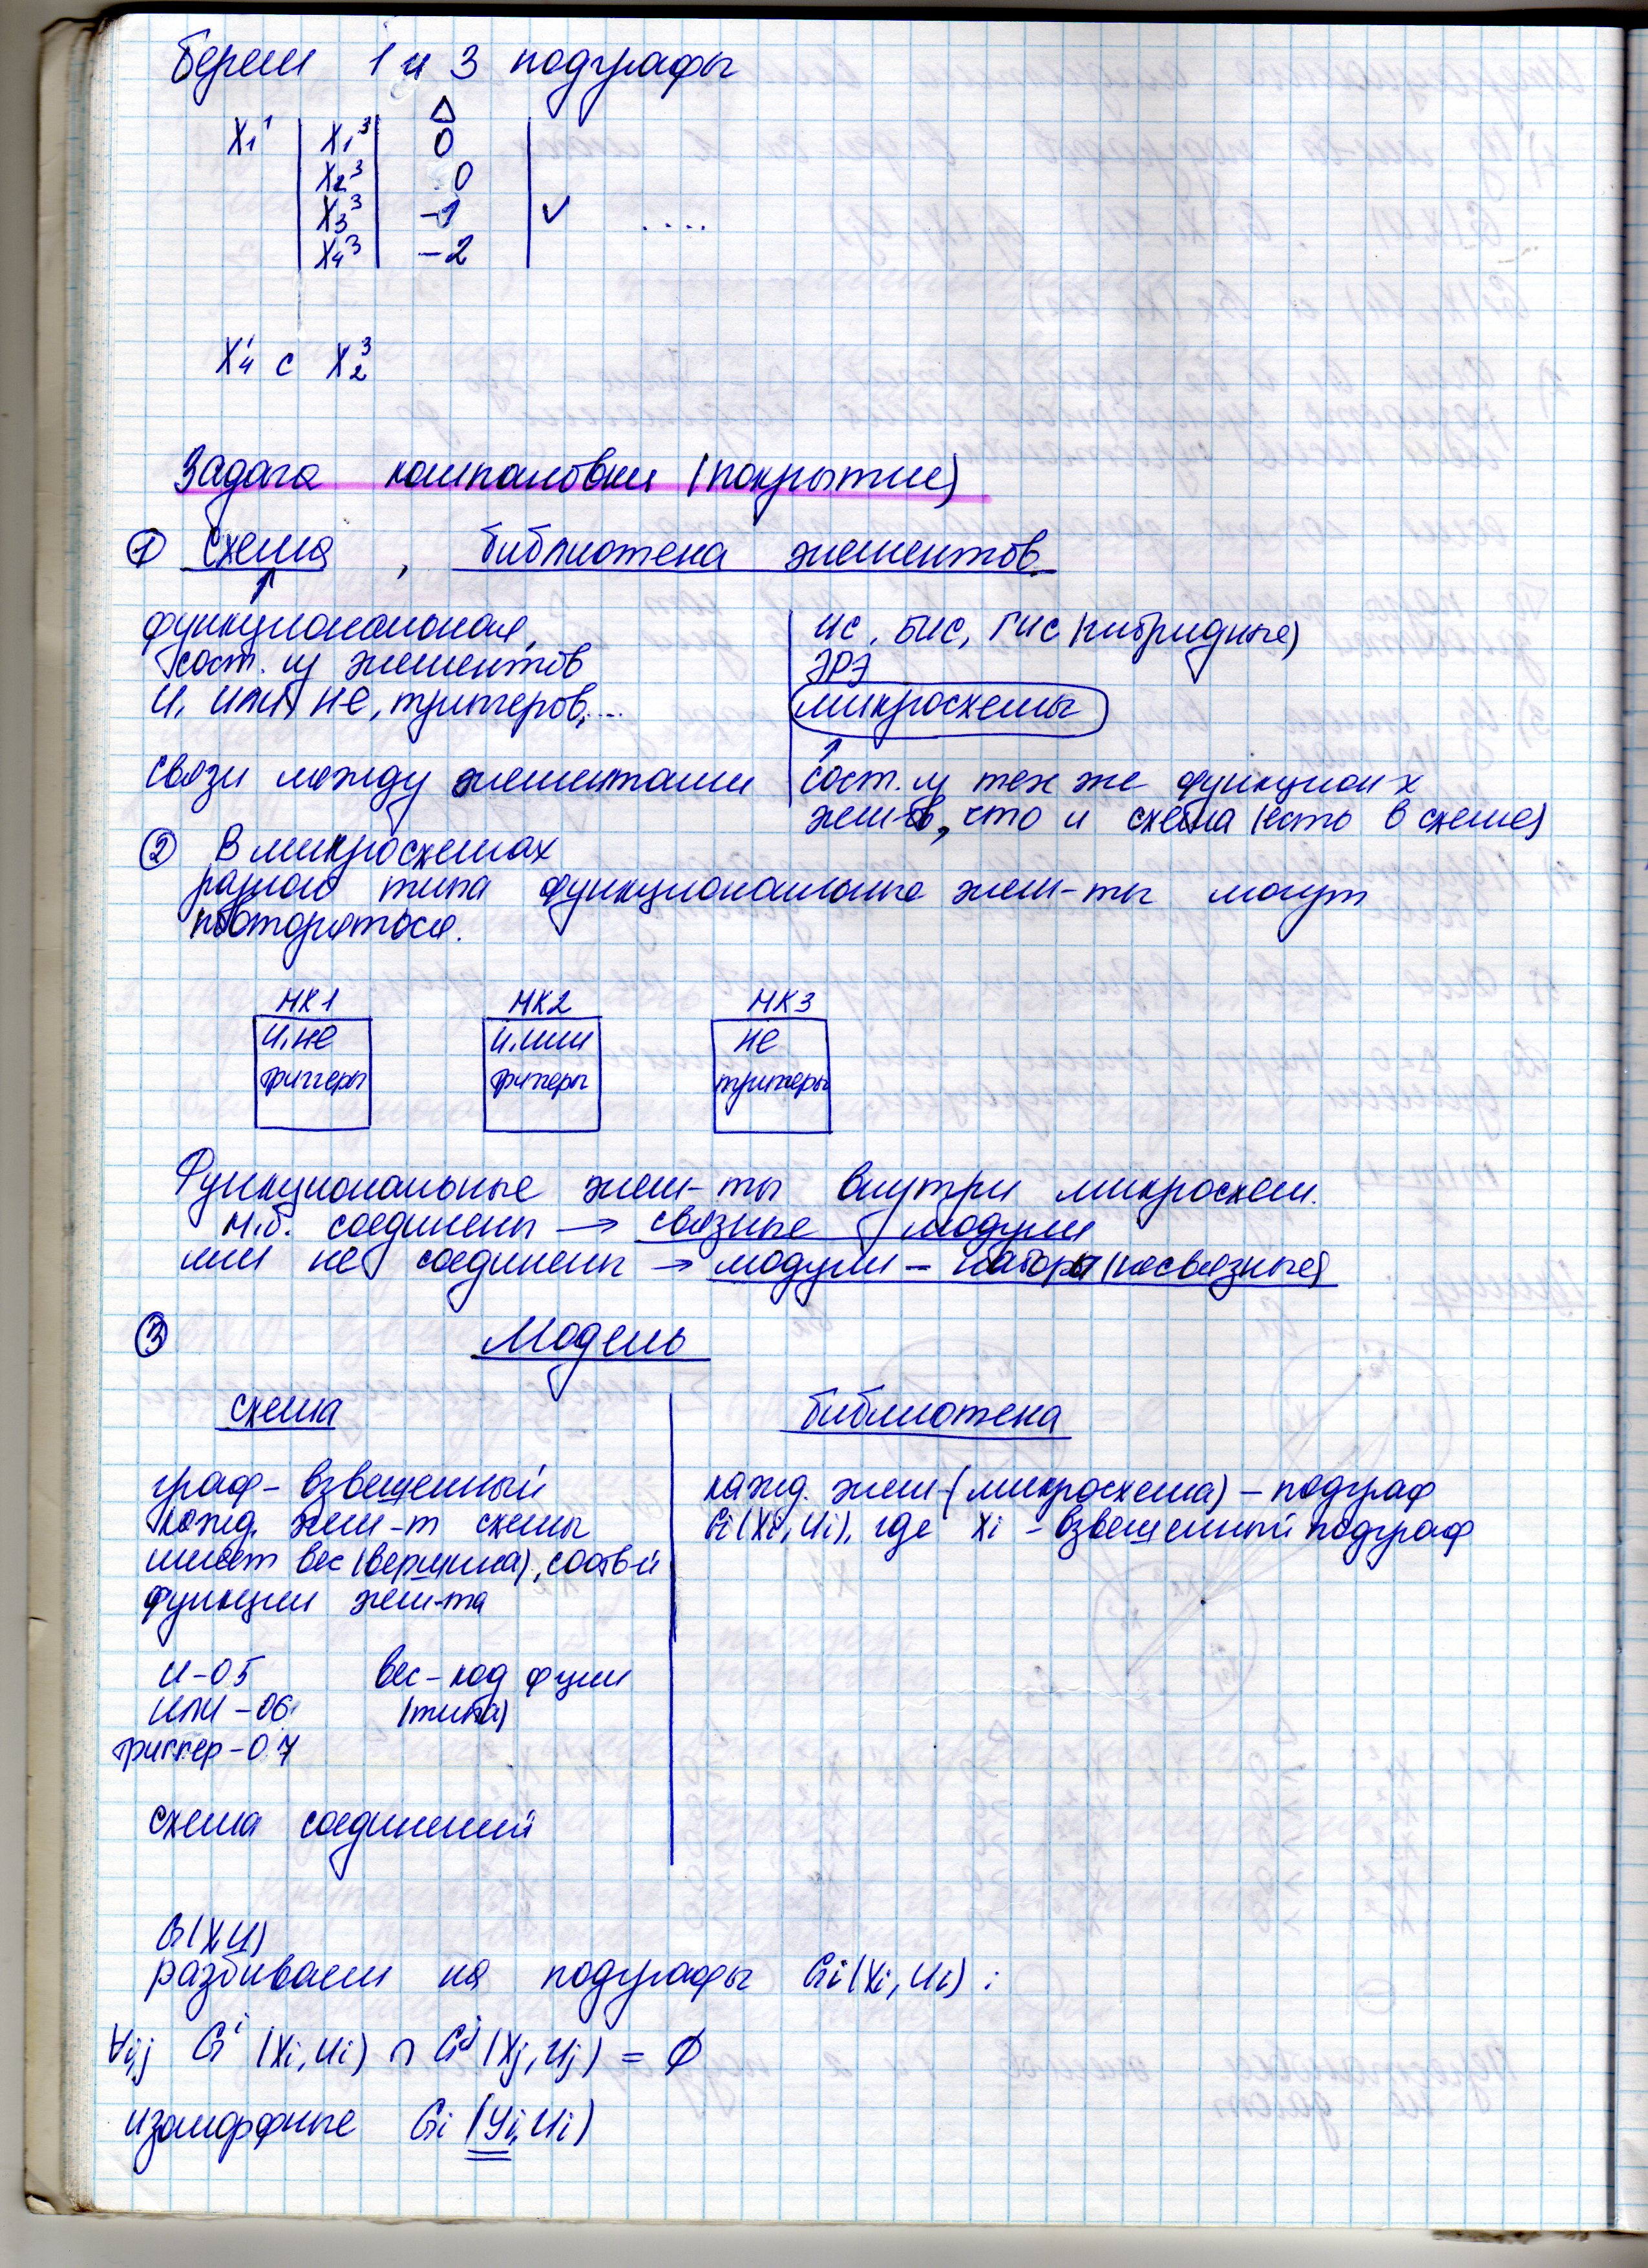 Берем 1 и 3 подграфы
Δ
X₁¹ | X₁³ | 0
X₂³ | 0
X₃³ | -1 | ✓ ....
X₄³ | -2
X₄¹ с X₂³
Задача компановки (покрытие)
① Схема, библиотека элементов
функциональная,
сост. из элементов
И, ИЛИ, НЕ, триггеров,...
связи между элементами
ИС, БИС, ГИС (гибридные)
ЭРЭ
микросхемы
сост. из тех же функцион х
элем-в, что и схема (есть в схеме)
② В микросхемах
разного типа функциональные элем-ты могут
повторяться.
МК1 МК2 МК3
И, НЕ
триггеры
И, ИЛИ
триггеры
НЕ
триггеры
Функциональные элем-ты внутри микросхем.
м.б. соединены → связные модули
или не соединены → модули - набора (несвязные)
③ Модель
схема
граф - взвешенный
кажд. элем-т схемы
имеет вес (вершина), соотв-й
функции элем-та
И - 05 вес - код фции
ИЛИ - 06 (типа)
триггер - 07
схема соединений
библиотека
кажд. элем-(микросхема) - подграф
Gi(Xi, Ui), где Xi - взвешенный подграф
G(X,U)
разбиваем на подграфы Gi(Xi, Ui) :
∀i,j Gⁱ (Xi, Ui) ∩ Gʲ (Xj, Uj) = ∅
изоморфные Gi (Yi, Ui)